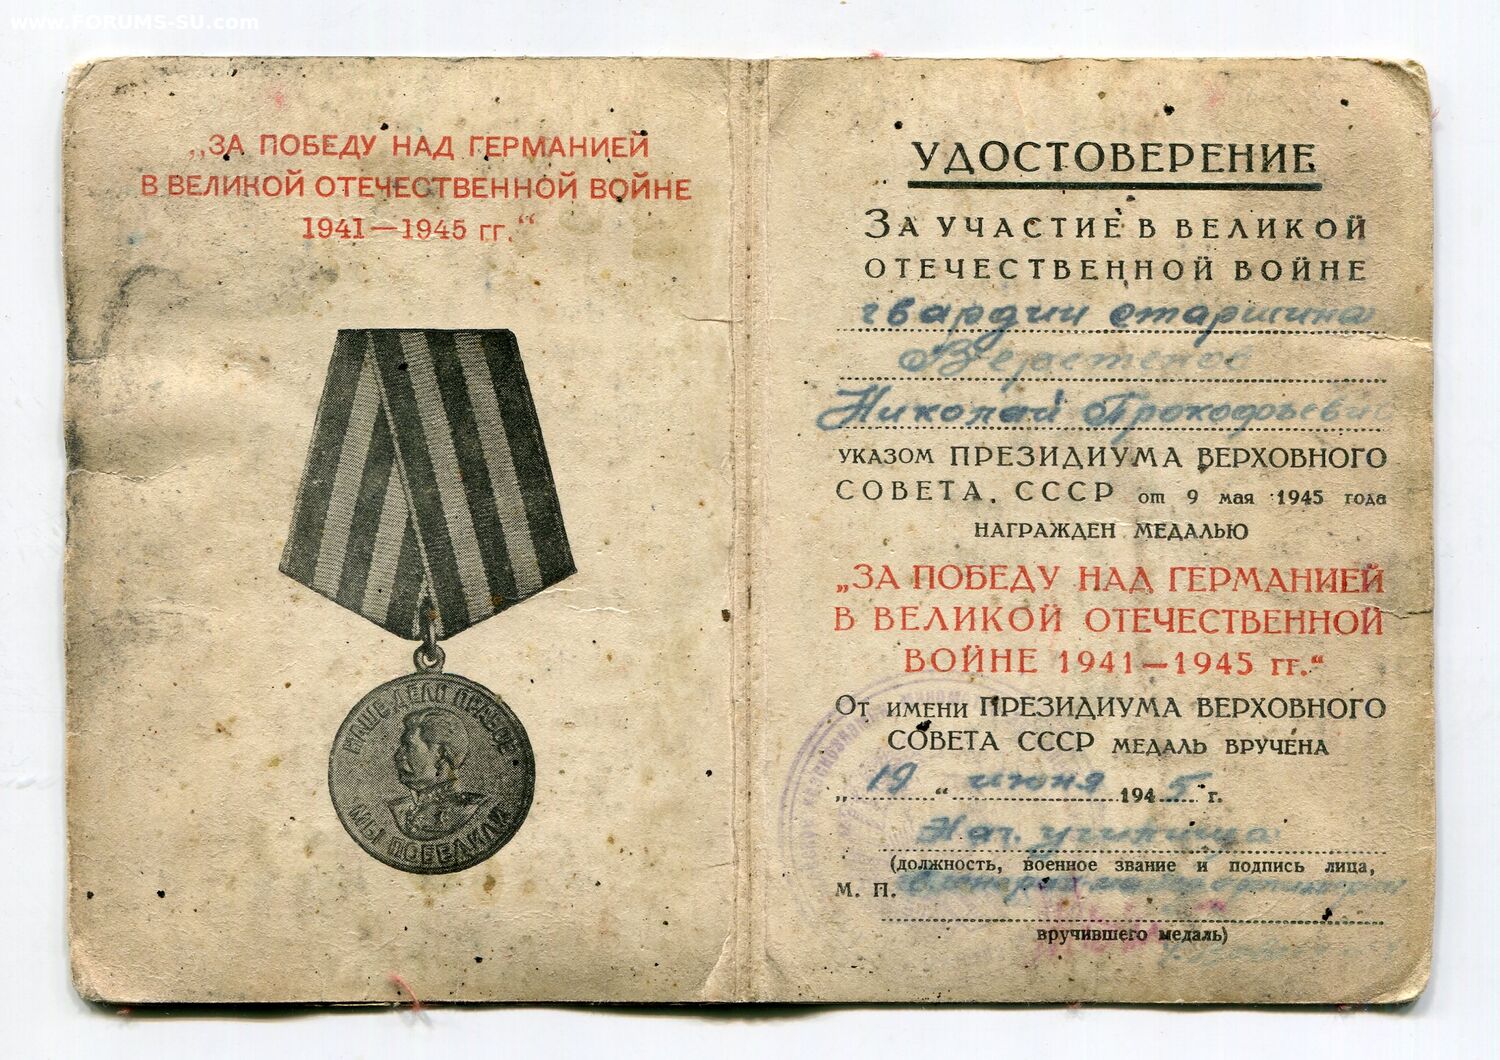 www.FORUMS-SU.com
„ЗА ПОБЕДУ НАД ГЕРМАНИЕЙ
В ВЕЛИКОЙ ОТЕЧЕСТВЕННОЙ ВОЙНЕ
1941—1945 гг.“
НАШЕ ДЕЛО ПРАВОЕ
МЫ ПОБЕДИЛИ
УДОСТОВЕРЕНИЕ
ЗА УЧАСТИЕ В ВЕЛИКОЙ
ОТЕЧЕСТВЕННОЙ ВОЙНЕ
гвардии старшина
Николай Прокофьевич
УКАЗОМ ПРЕЗИДИУМА ВЕРХОВНОГО
СОВЕТА СССР от 9 мая 1945 года
НАГРАЖДЕН МЕДАЛЬЮ
„ЗА ПОБЕДУ НАД ГЕРМАНИЕЙ
В ВЕЛИКОЙ ОТЕЧЕСТВЕННОЙ
ВОЙНЕ 1941—1945 гг.“
ОТ ИМЕНИ ПРЕЗИДИУМА ВЕРХОВНОГО
СОВЕТА СССР МЕДАЛЬ ВРУЧЕНА
„19“ июня 1945 г.
Нач. училища
(должность, военное звание и подпись лица,
М. П.
вручившего медаль)